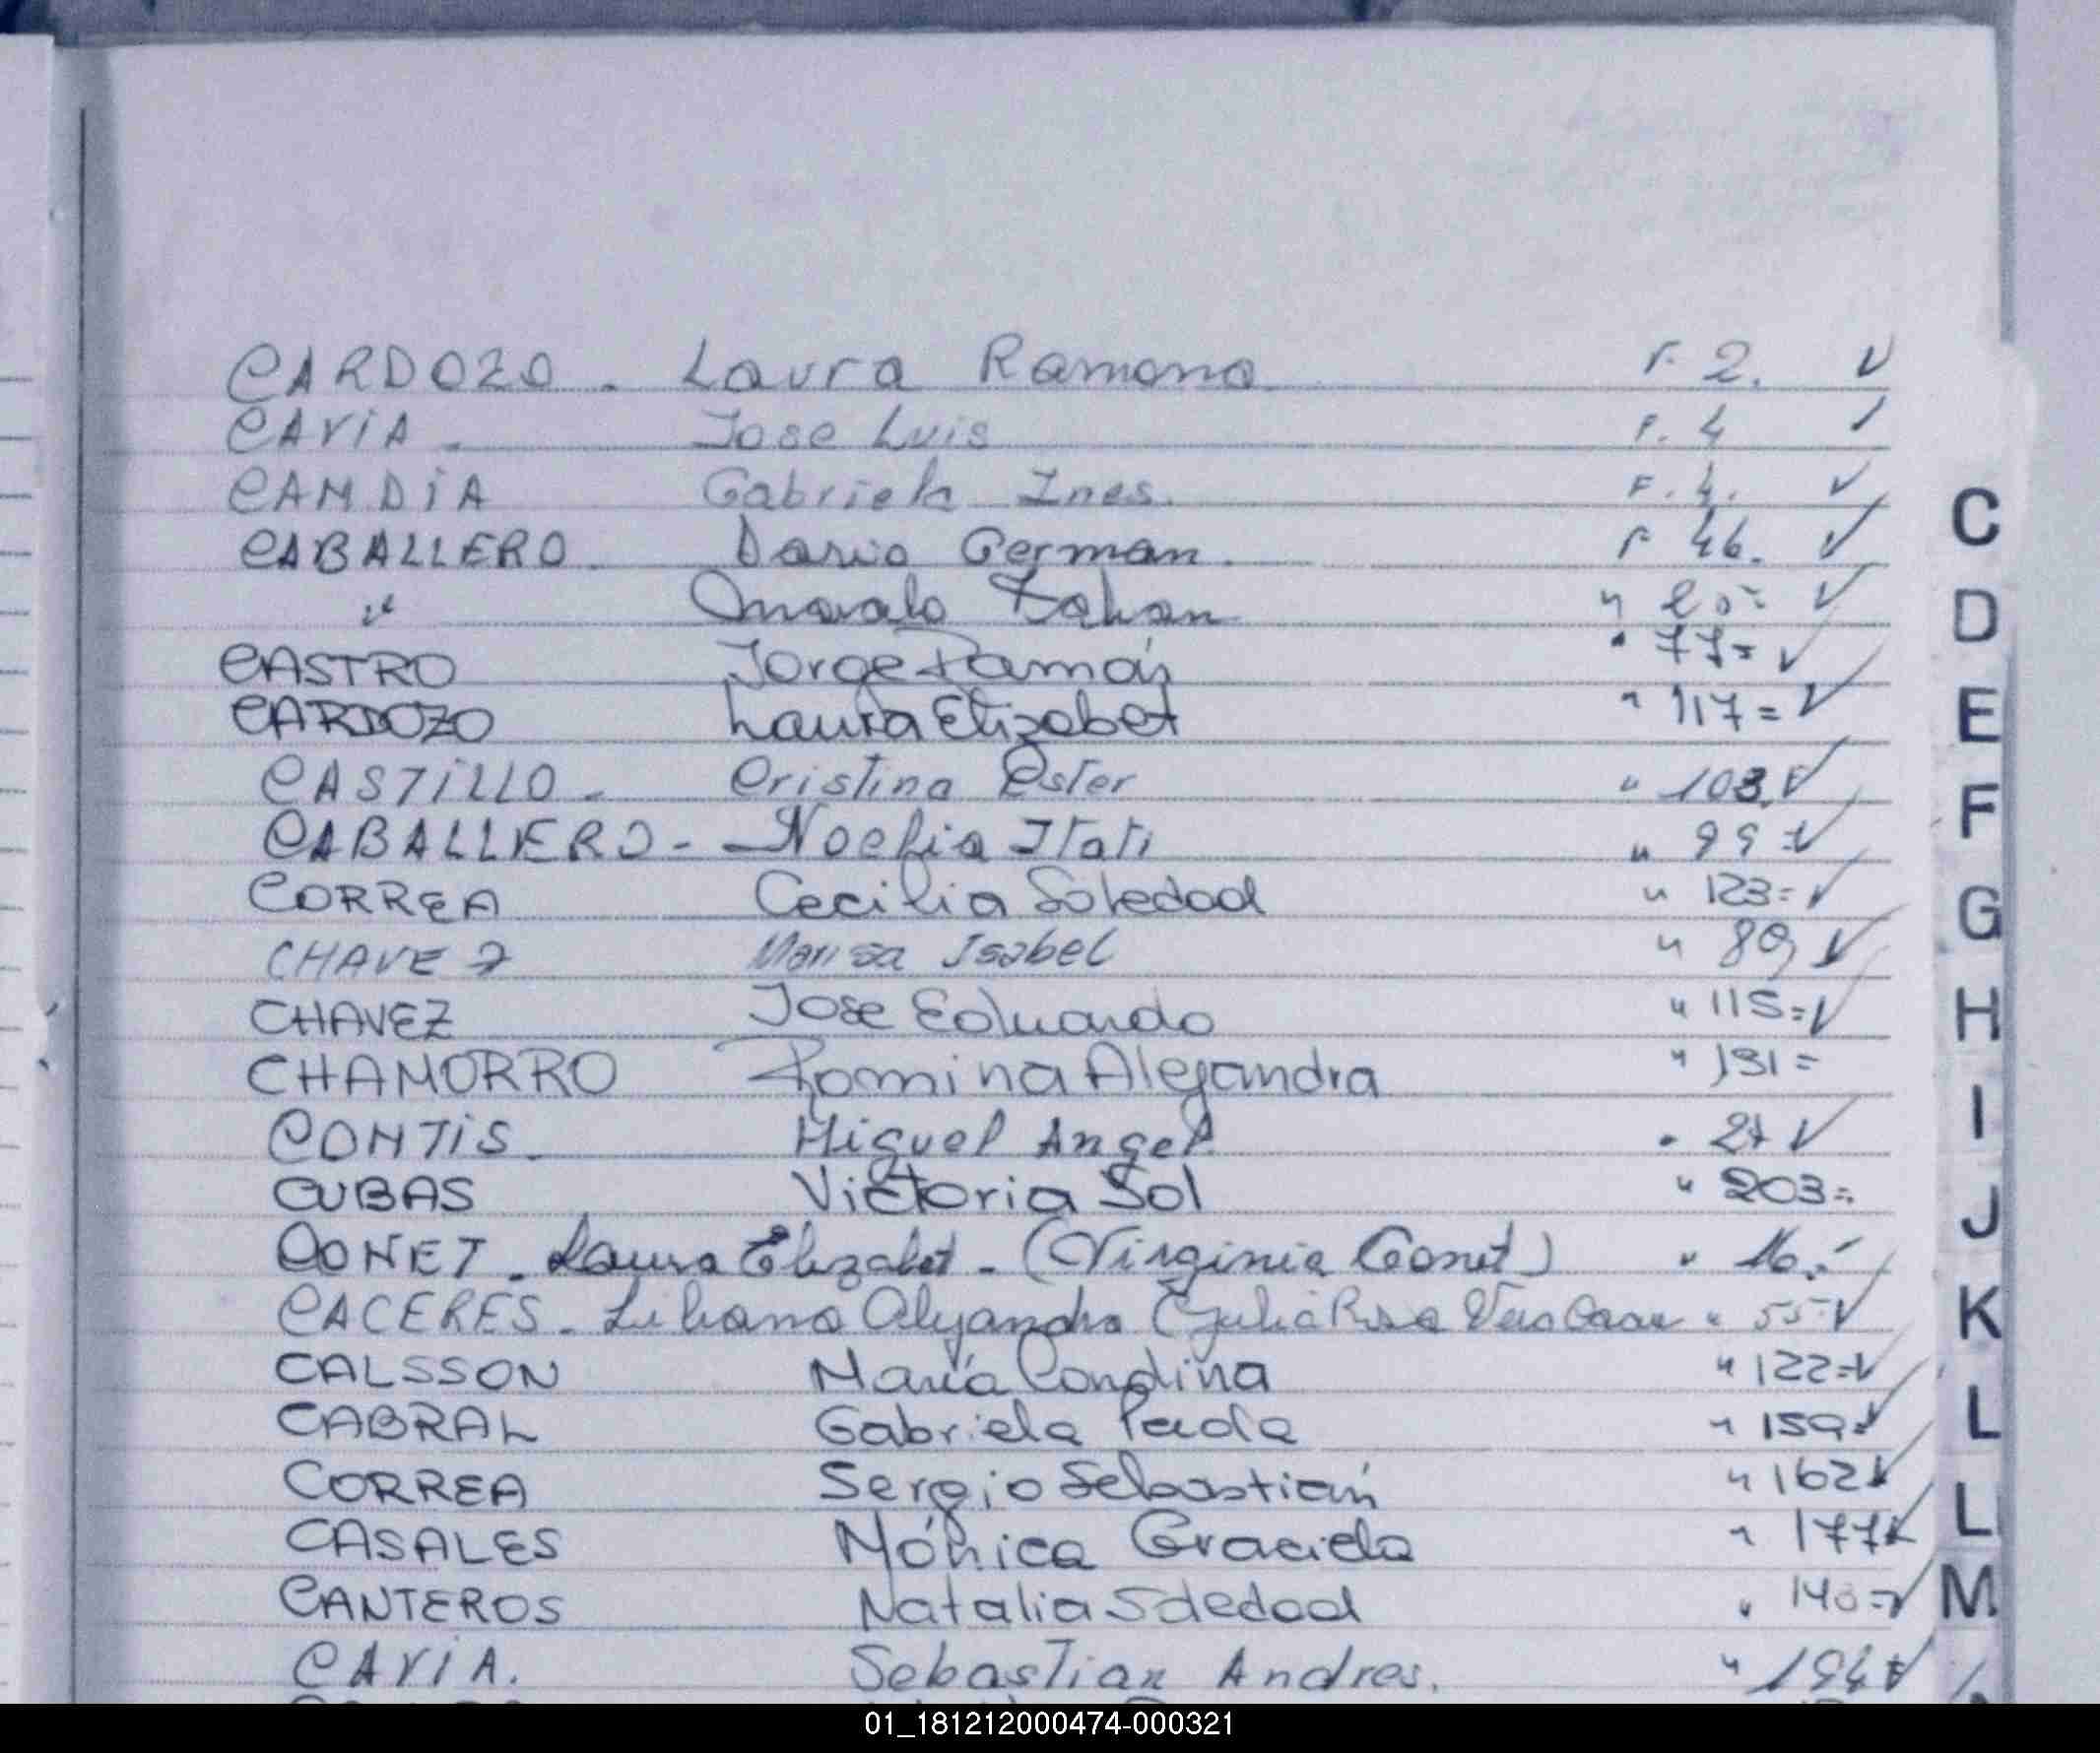 CARDOZO. Laura Ramona F. 2. ✓
CAVIA. Jose Luis F. 4 ✓
CAMDIA Gabriela Ines. F. 4. ✓
CABALLERO. Dario German. F 46. ✓
" " ✓
CASTRO Jorge Ramón " 77= ✓
CARDOZO Laura Elizabet " 117= ✓
CASTILLO. Cristina Ester " 103. ✓
CABALLERO - Noelia Itati " 99= ✓
CORREA Cecilia Soledad " 123= ✓
CHAVEZ Marisa Isabel " 89 ✓
CHAVEZ Jose Eduardo " 115= ✓
CHAMORRO Romina Alejandra " 131=
CONTIS. Miguel Angel " ✓
CUBAS Victoria Sol " 203=
CONET. Laura Elizabet - (Virginia Conet) " 16.-
CACERES. Liliana Alejandra (Julia Rosa " 55 ✓
CALSSON María " 122= ✓
CABRAL Gabriela Paola " 159 ✓
CORREA Sergio Sebastián " 162 ✓
CASALES Mónica Graciela " 177 ✓
CANTEROS Natalia Soledad " 140= ✓
CAVIA. Sebastian Andres. " 194 ✓
C
D
E
F
G
H
I
J
K
L
L
M
01_181212000474-000321